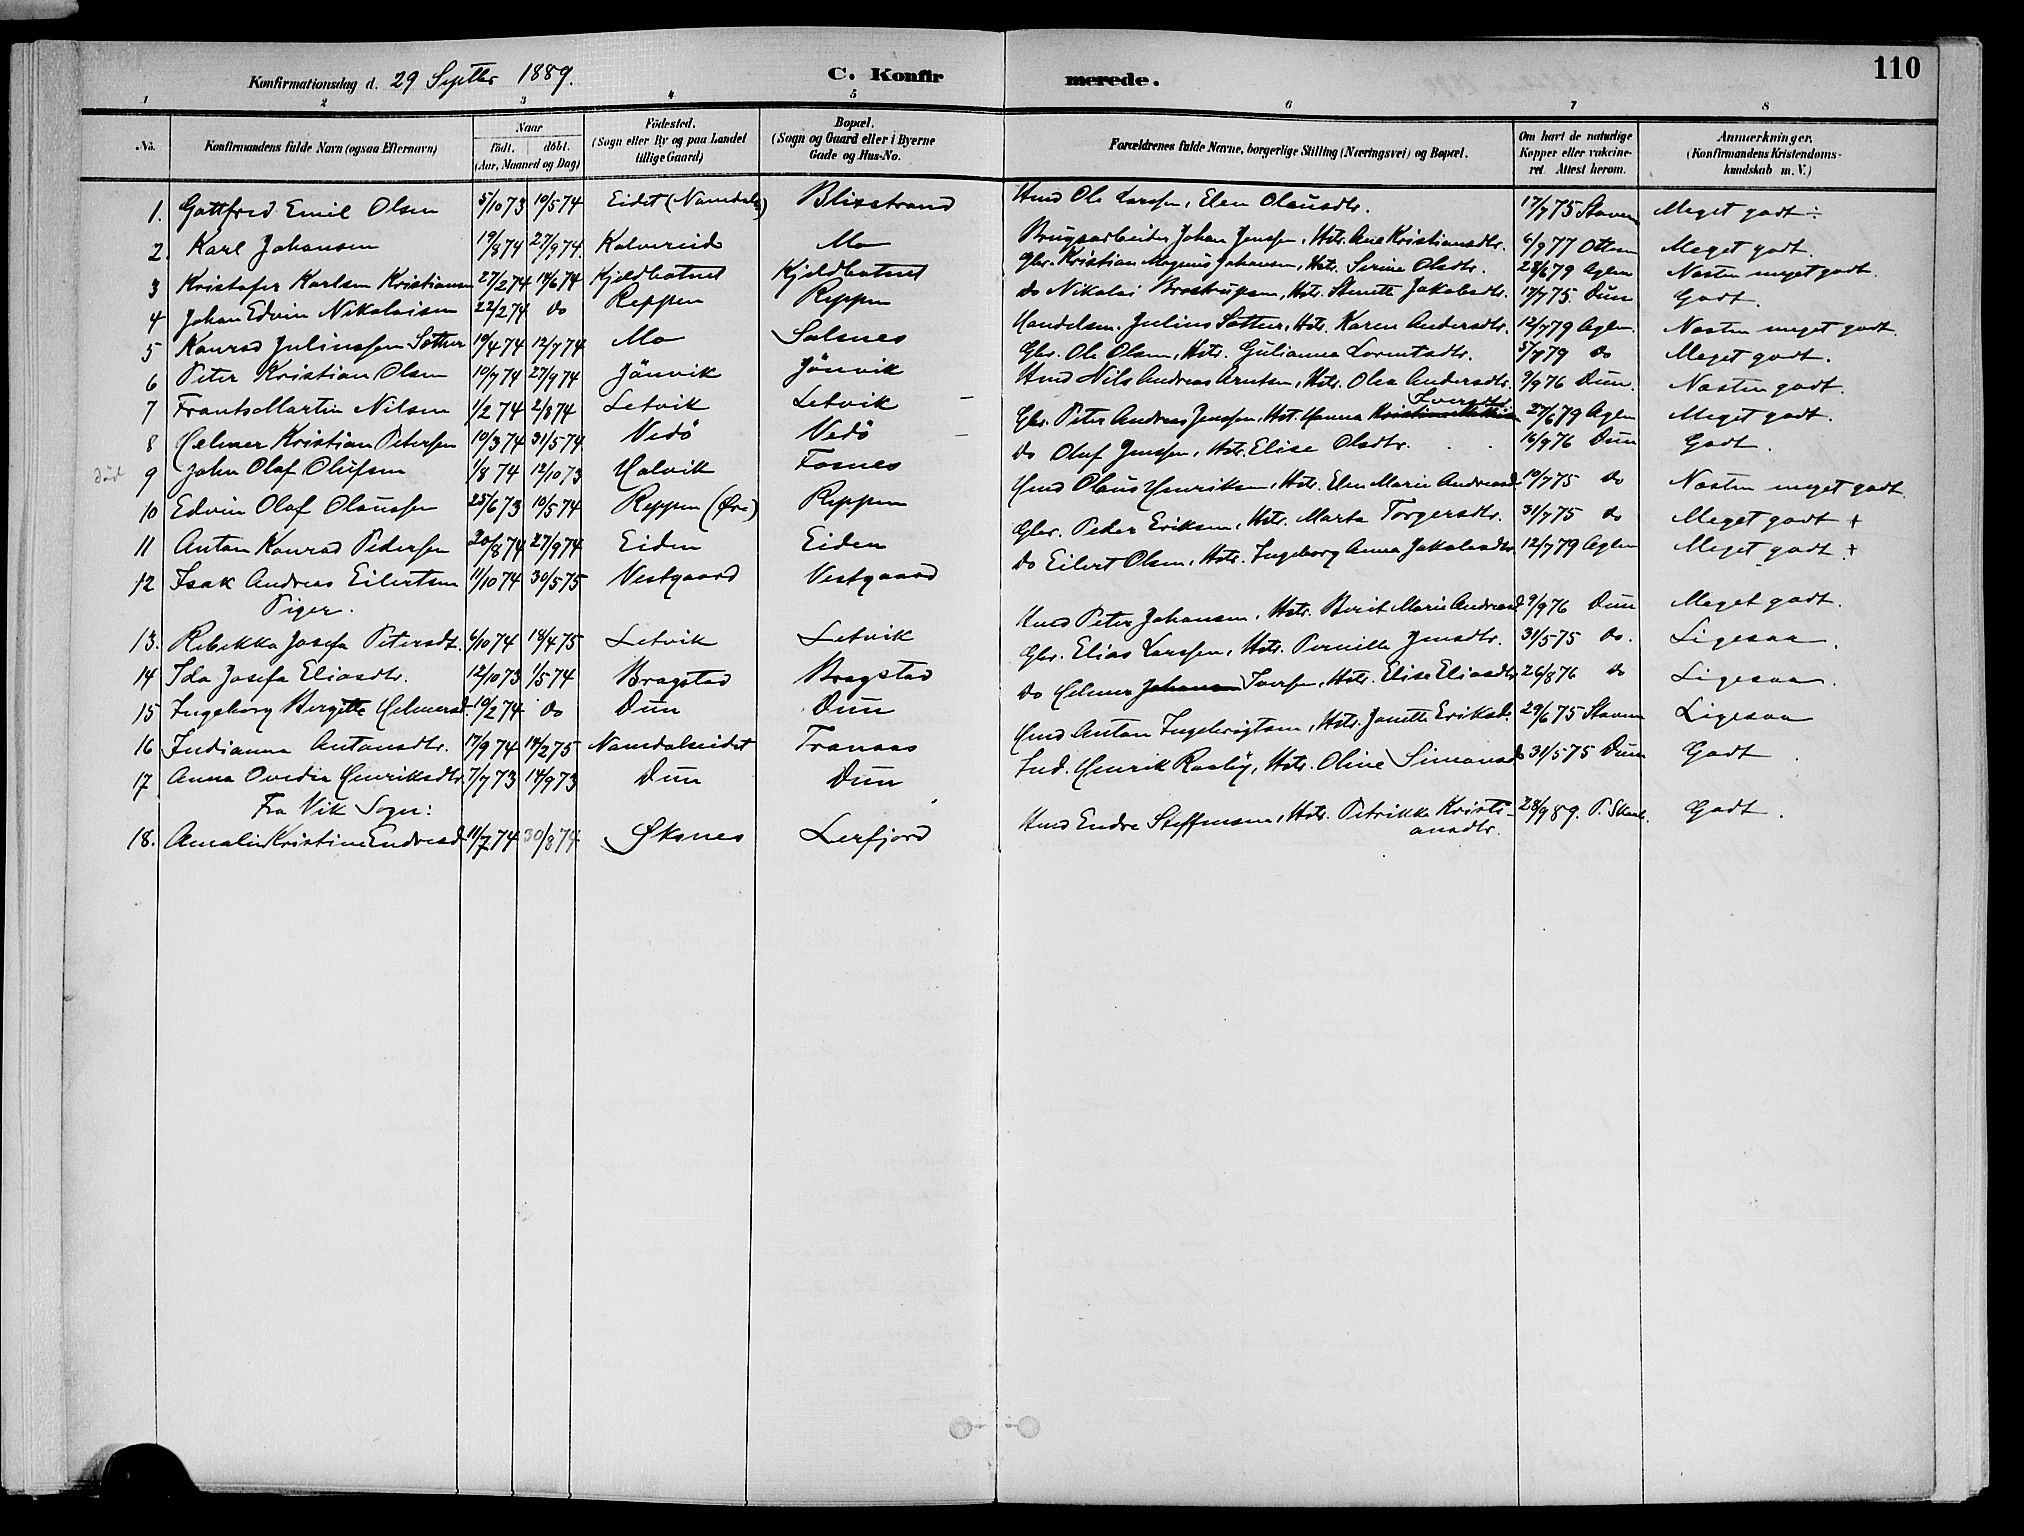 110
Konfirmationsdag d. 29 Septbr 1889. C. Konfirmerede.
1 2 3 4 5 6 7 8
No. Konfirmandens fulde Navn (ogsaa Efternavn) Naar födt. döbt. (Aar, Maaned og Dag) Födested. (Sogn eller By og paa Landet tillige Gaard) Bopæl. (Sogn og Gaard eller i Byerne Gade og Hus-No. Forældrenes fulde Navne, borgerlige Stilling (Næringsvei) og Bopæl. Om havt de naturlige Kopper eller vakcineret. Attest herom. Anmærkninger. (Konfirmandens Kristendomskundskab m. V.)
1. Gottfred Emil Olsen 5/10 73 10/5 74 Eidet (Namdals) Blixstrand Hmd Ole Larssen, Elen Olausdtr. 17/7 75 Stavem Meget godt ÷
2. Karl Johansen 19/8 74 27/9 74 Kalvereid Mo Brugsarbeider Johan Jenssen, Hstr. Ane Kristiansdtr. 6/9 77 Ottesen Meget godt.
3 Kristofer Karlsen Kristiansen 27/2 74 14/6 74 Kjeldbotnet Kjeldbotnet Gbr. Kristian Magnus Johansen, Hstr. Serine Olsdtr. 28/6 79 Aglen Næsten meget godt.
4 Johan Edvin Nikolaisen 22/2 74 do Reppen Reppen do Nikolai Brostrupsen, Hstr. Jakobsdtr. 17/7 75 Dun Godt.
5 Konrad Julinssen Sother 10/4 74 12/7 74 Mo Salsnes Handelsm. Julius Sother, Hstr. Karen Andersdtr. 12/7 79 Aglen. Næsten meget godt.
6 Peter Kristian Olsen 10/7 74 27/9 74 Jönvik Jönvik Gbr. Ole Olsen, Hstr. Gulianna Lorentsdtr. 5/7 79 do Meget godt.
7 Frants Martin Nilsen 1/2 74 2/8 74 Letvik Letvik Hmd Nils Andreas Arntsen, Hstr. Olea Andersdtr. 9/9 76 Dun. Næsten godt.
8 Helmer Kristian Petersen 10/3 74 31/5 74 Vedö Vedö Gbr. Peter Andreas Jenssen, Hst. Hanna Iversdtr 27/6 79 Aglen Meget godt.
död 9 John Olaf Olufsen 1/8 74 12/10 73 Halvik Fosnes do Oluf Jenssen, Hstr. Elise Olsdtr. 16/9 76 Dun Godt.
10 Edvin Olaf Olaussen 25/6 73 10/5 74 Reppen (Øvre) Reppen Hmd Olaus Henriksen, Hstr. Elen Marie Andreasd. 10/7 75 do Næsten meget godt.
11 Anton Konrad Pedersen 20/8 74 27/9 74 Eiden Eiden Gbr. Peder Eriksen, Hstr. Marta Torgersdtr. 31/7 75 do Meget godt +
12 Isak Andreas Eilertsen 11/10 74 30/5 75 Vestgaard Vestgaard do Eilert Olsen, Hstr. Ingeborg Anna Jakobsdtr 12/7 79 Aglen Meget godt +
Piger.
13. Rebekka Josefa Petersdt. 6/10 74 18/4 75 Letvik Letvik Hmd Peter Johansen, Hstr. Berit Marie Andreasd 9/9 76 Dun Meget godt.
14 Ida Josefa Eliasdtr. 12/10 73 1/5 74 Bragstad Bragstad Gbr. Elias Larssen, Hstr. Pernille Jensdtr. 31/5 75 do. Ligesaa.
15 Ingeborg Bergitte Helmersd. 10/2 74 do Dun Dun do Helmer Johansen Iversen, Hstr. Elise Eliasdtr 26/8 76 do Ligesaa.
16 Indianna Antonsdtr. 17/9 74 14/2 75 Namdalseidet Tranaas Hmd Anton Ingebrigtsen, Hstr. Janette Eriksd. 29/6 75 Stavem Ligesaa
17 Anna Ovedia Henriksdtr. 7/7 73 14/9 73 Dun Dun Ind. Henrik Rosby, Hstr. Oline Simonsd 31/5 75 Dun Godt.
Fra Vik Sogn:
18. Amalie Kristine Endresd. 11/7 74 30/8 74 Øksnes Lerfjord Hmd Endre Steffensen, Hstr. Petrikke Kristiansdtr. 28/9 89. P. Skank. Godt.